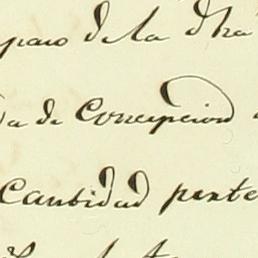 paro de la dha
da de Concepcion
Cantidad perte